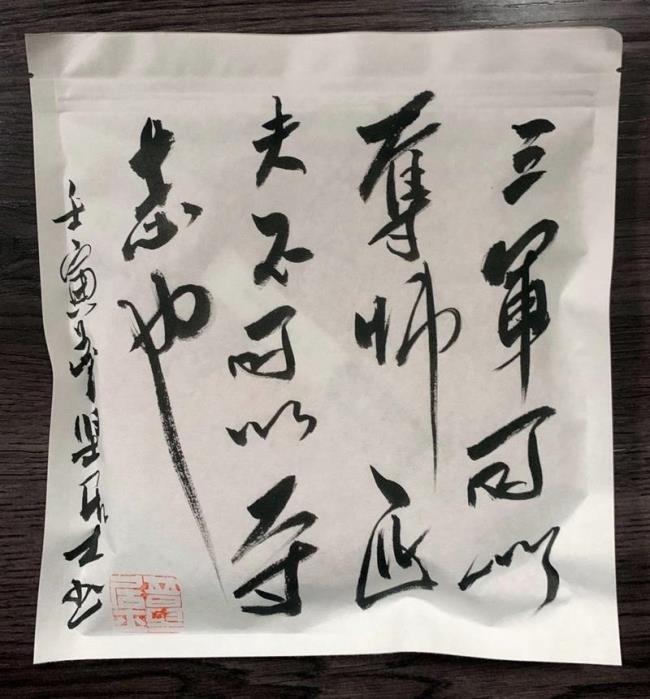 三軍可以
奪帥匹
夫不可以夺
志也
壬寅年居士书